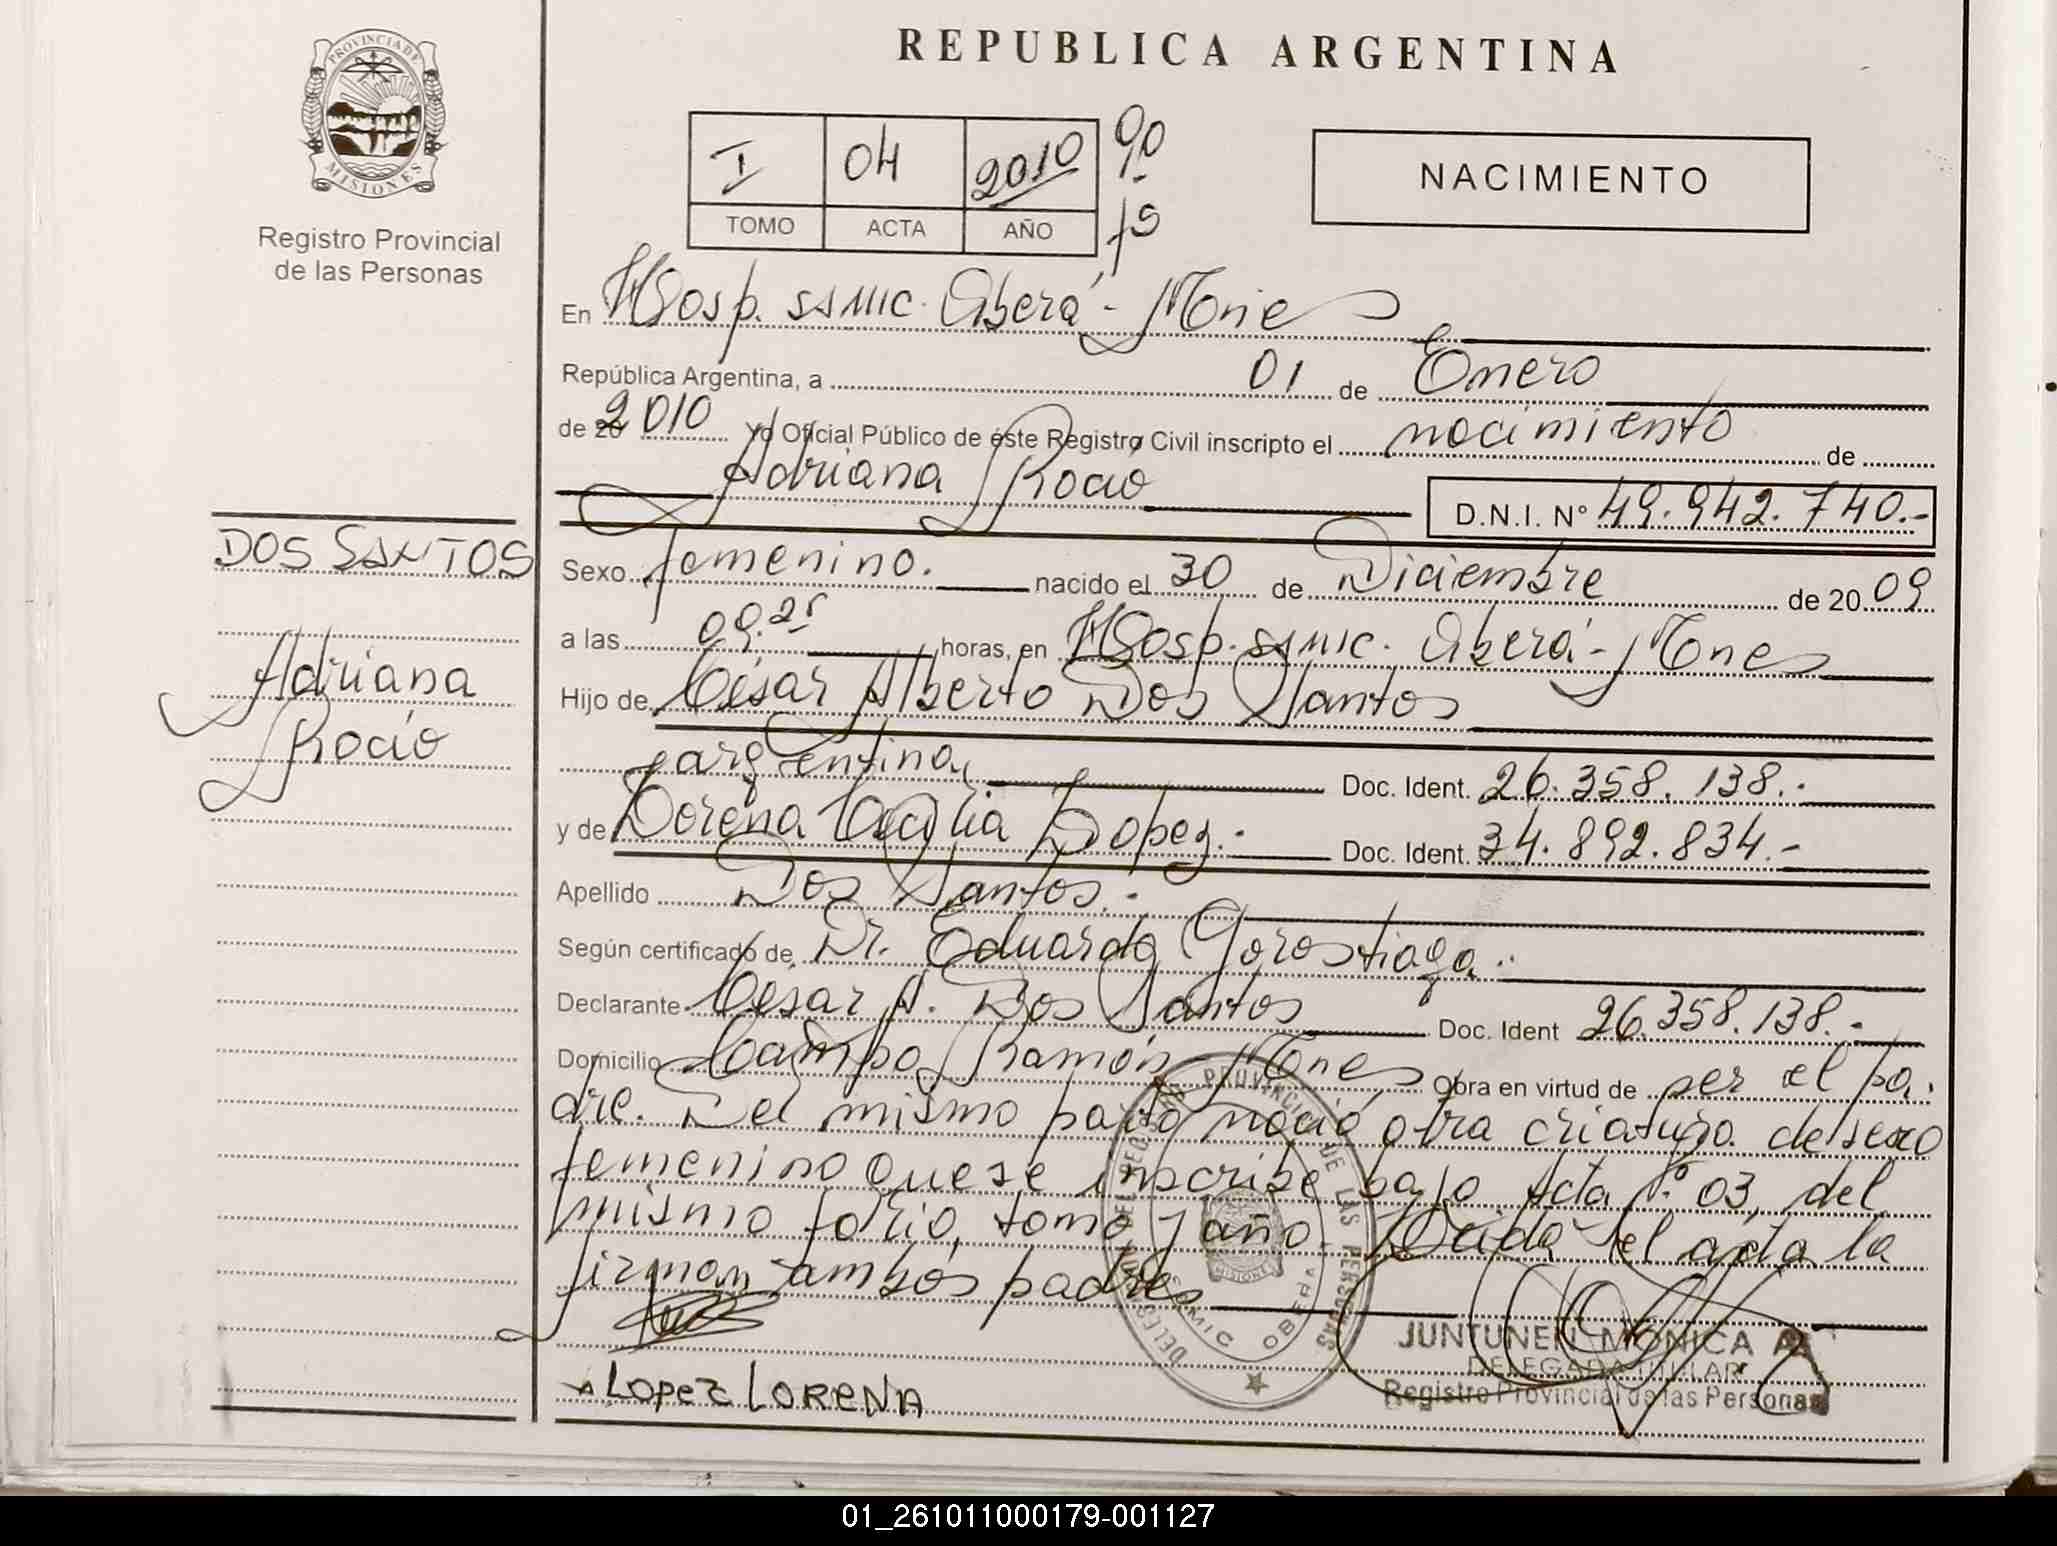 REPUBLICA ARGENTINA
PROVINCIA DE
MISIONES
Registro Provincial
de las Personas
I 04 2010 90
TOMO ACTA AÑO fs
NACIMIENTO
En Hosp. SAMIC. Oberá - Mnes
República Argentina, a 01 de Enero
de 20 2010 Yo Oficial Público de éste Registro Civil inscripto el nacimiento de
Adriana Rocío D.N.I. Nº 49.942.740.-
DOS SANTOS
Adriana
Rocío
Sexo femenino. nacido el 30 de Diciembre de 20 09
a las 09.25 horas, en Hosp. SAMIC. Oberá - Mnes
Hijo de César Alberto Dos Santos
argentino, Doc. Ident. 26.358.138.-
y de Lorena Cecilia Lopez.- Doc. Ident. 34.892.834.-
Apellido Dos Santos.-
Según certificado de Dr. Eduardo Gorostiaga.-
Declarante César A. Dos Santos Doc. Ident 26.358.138.-
Domicilio Campo Ramón - Mnes Obra en virtud de ser el pa-
dre. Del mismo parto nació otra criatura de sexo
femenino que se inscribe bajo Acta N.º 03, del
mismo folio, tomo y año. Leída el acta la
firman ambos padres
LOPEZ LORENA
DELEGACION DEL REGISTRO PROVINCIAL DE LAS PERSONAS
SAMIC OBERA
MISIONES
JUNTUNEN MONICA A.
DELEGADA TITULAR
Registro Provincial de las Personas
01_261011000179-001127